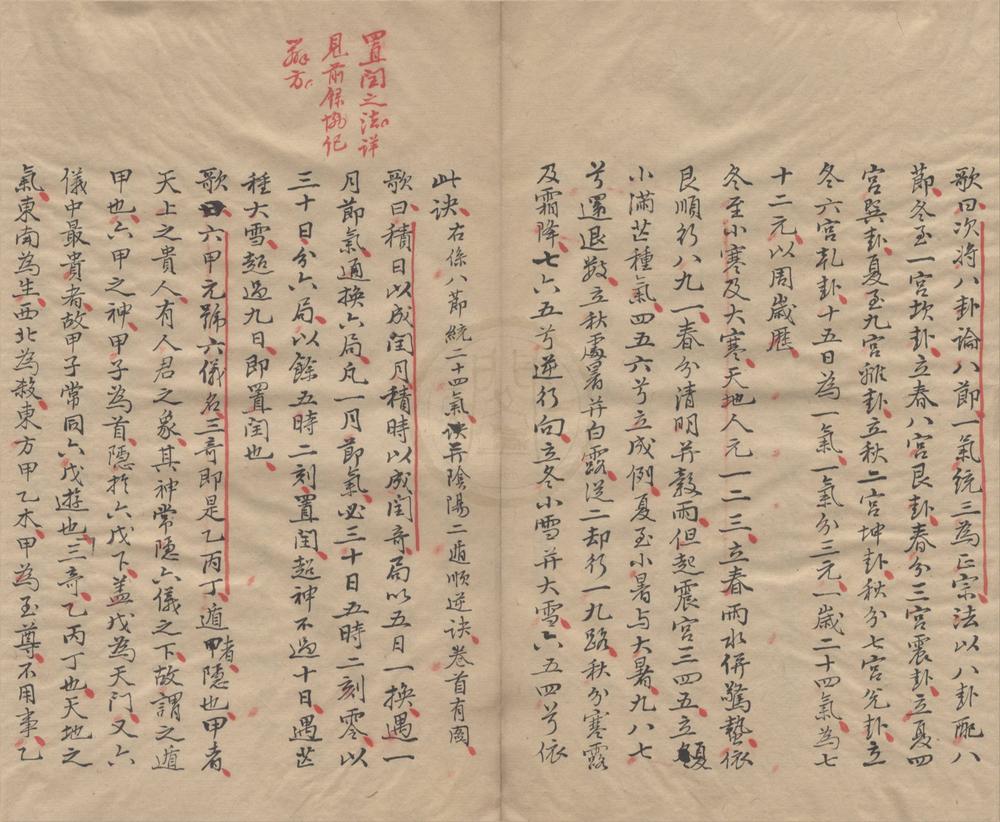 歌曰次將八卦論八節一氣統三為正宗法以八卦配八
節冬至一宮坎卦立春八宮艮卦春分三宮震卦立夏四
宮巽卦夏至九宮離卦立秋二宮坤卦秋分七宮兌卦立
冬六宮乾卦十五日為一氣一氣分三元一歲二十四氣為七
十二元以周歲曆
冬至小寒及大寒天地人元一二三立春雨水併驚蟄依
艮順行八九一春分清明并穀雨但起震宮三四五立夏
小滿芒種氣四五六兮立成例夏至小暑与大暑九八七
兮還退數立秋處暑并白露從二却行一九路秋分寒露
及霜降七六五兮逆行向立冬小雪并大雪六五四兮依
此訣右係八節統二十四氣訣并陰陽二遁順逆訣卷首有圖
歌曰積日以成閏月積時以成閏奇局以五日一換遇一
月節氣通換六局凡一月節氣必三十日五時二刻零以
三十日分六局以餘五時二刻置閏超神不過十日遇芒
種大雪超過九日即置閏也
歌曰六甲元號六儀名三奇即是乙丙丁遁甲者隱也甲者
天上之貴人有人君之象其神常隱六儀之下故謂之遁
甲也六甲之神甲子為首隱於六戊下盖戊為天門又六
儀中最貴者故甲子常同六戊遊也三奇乙丙丁也天地之
氣東南為生西北為殺東方甲乙木甲為至尊不用事乙
置閏之法詳
見前